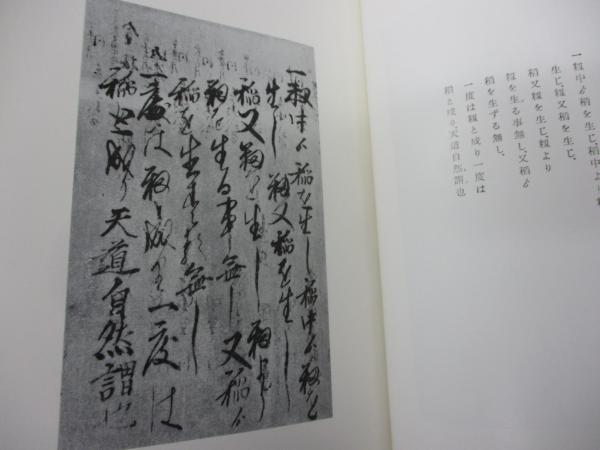 一籾中ゟ稻を生じ、稻中より籾
生じ、籾又稻を生じ、
稻又籾を生じ、籾より
籾を生る事無し、又稻ゟ
稻を生ずる無し、
一度は籾と成り一度は
稻と成り天道自然謂也
一籾中ゟ稲を生し稲中ゟ籾を
生し籾又稲を生し
稲又籾を生し籾より
籾を生る事無し又稲ゟ
稲を生する無し
一度は籾と成り一度は
稲と成り天道自然謂也